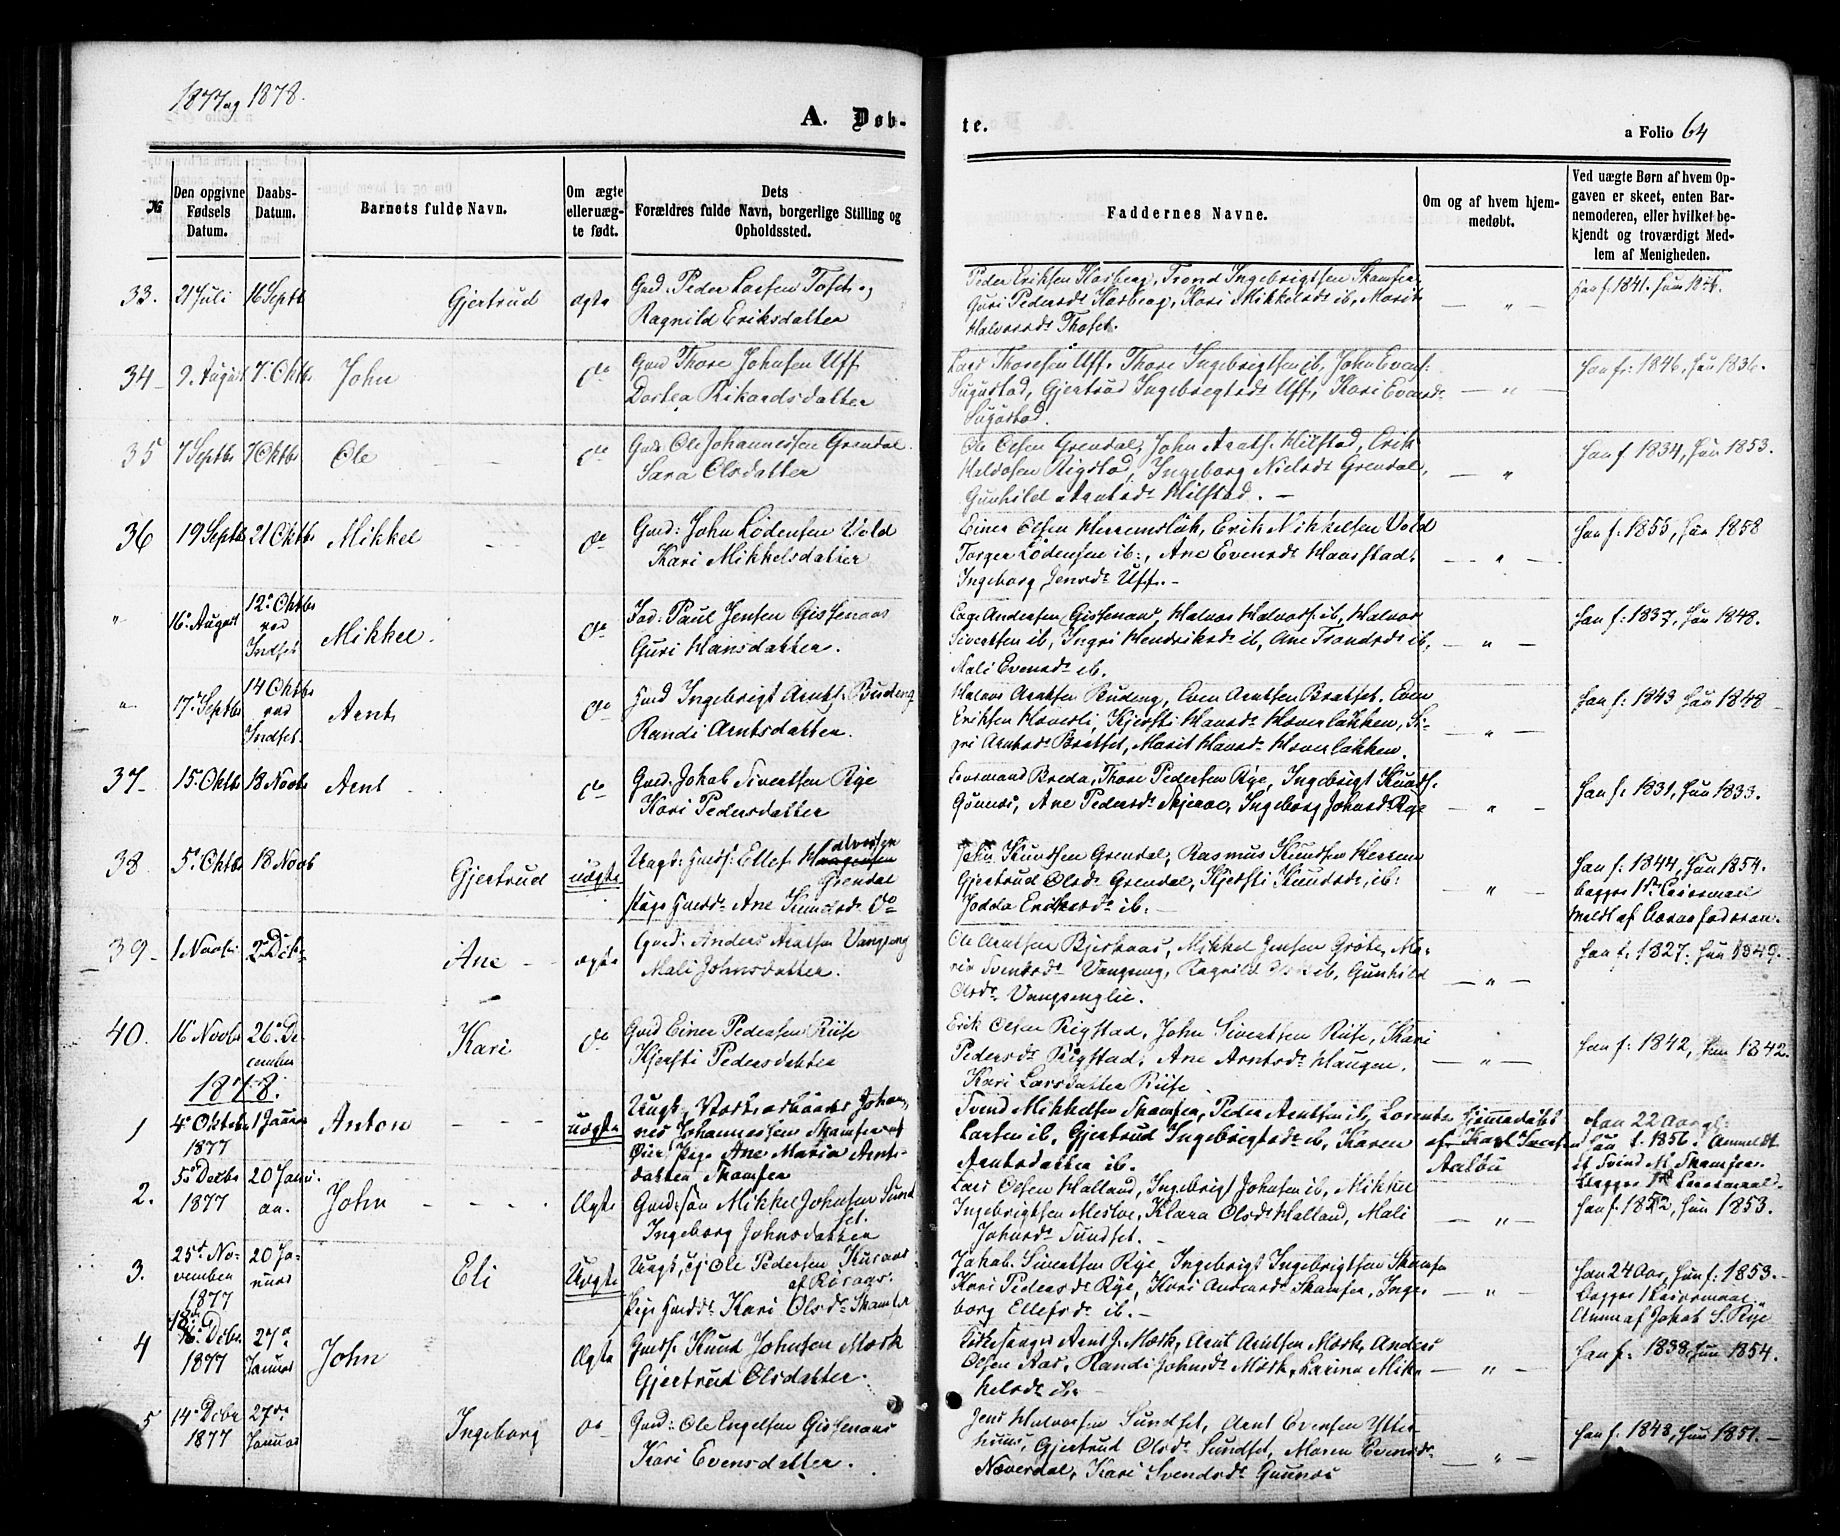 1877 og 1878.
A. Døb-
te.
a Folio 64
№
Den opgivne
Fødsels
Datum.
Daabs-
Datum.
Barnets fulde Navn.
Om ægte
eller uæg-
te født.
Dets
Forældres fulde Navn, borgerlige Stilling og
Opholdssted.
Faddernes Navne.
Om og af hvem hjem-
medøbt.
Ved uægte Børn af hvem Op-
gaven er skeet, enten Bar-
nemoderen, eller hvilket be-
kjendt og troværdigt Med-
lem af Menigheden.
33. 21 Juli 16 Septb Gjertrud ægte
Gmd: Peder Larsen Toset og
Ragnild Eriksdatter
Peder Eriksen Karberg, Trond Ingebrigtsen Skamfer,
Guri Pedersdr Karberg, Kari Mikkelsdr ib, Marit
Halvorsdr Thoset.
— " —
han f. 1841. hun 1846.
34 9. August 7. Oktb John do
Gmd Thore Johnsen Uff
Dortea Rikardsdatter
Lars Thoresen Uff, Thore Ingebrigtsen ib, John Evens:
Gjertrud Ingebrigtsdr Uff, Kari Evensdr
— " —
han f: 1846, hun 1836.
35 7 Septbr 7 Oktbr Ole do
Gmd: Ole Johannessen Grendal
Sara Olsdatter
Ole Olsen Grendal, John Arntsn Hilstad, Erik
Haldosen Rigstad, Ingeborg Nielsdr Grendal,
Gunhild Arntsdr Hilstad. —
— " —
han f. 1834, hun 1853.
36 19 Septbr 21 Oktbr Mikkel do
Gmd: John Lødensen Vold
Kari Mikkelsdatter
Einer Olsen Herremslak, Erik Mikkelsen Vold
Torger Lødensen ib:, Ane Evensdr Haarstad,
Ingeborg Jensdr Uff. —
— " —
han f: 1855, hun 1858
" 16. August 12. Oktbr
ved
Indset Mikkel. do
Ind: Paul Jensen Gissenaas
Guri Hansdatter.
Andersen Gissenaas, Halvor Halvorsn ib, Halvor
Sivertsen ib, Ingri Hendriksdr ib, Ane Trondsdr ib,
Mali Evensdr ib.
— " —
han f: 1837, hun 1848.
" 17. Septbr 14 Oktbr
ved
Indset. Arnt do
Gmd Ingebrigt Arnts: Budeng
Randi Arntsdatter.
Halvor Arntsen Budeng, Even Arntsen Bratset, Even
Eriksen Haverli, Kjersti Hansdr Haverløkken, Si-
gri Arntsdr Bratset, Marit Hansdr Haverløkken.
— " —
han f: 1843 hun 1848 —
37 15. Oktbr 18 Novbr Arnt do
Gmd: Johab Sivertsen Rye
Kari Pedersdatter
Breda, Thore Pedersen Rye, Ingebrigt Knuds.
Gunnes, Ane Pedersdr Skjerve, Ingeborg Johnsdr Rye
— " —
han f. 1831, hun 1833.
38. 5. Oktbr 18 Novb Gjertrud uægte
Ungk: Gmds: Ellef Halvorsen
Grendal
Pige Gmdd: Ane Knudsdr do
John Knudsen Grendal, Rasmus Knudsen Herrem
Gjertrud Olsdr Grendal, Kjersti Knudsdr ib:
Jodda Eriksdr ib. —
— " —
han f. 1844, hun 1854.
begges 1ste Leiermaal
meldt af Barnefaderen.
39 1 Novbr 2 Decbr Ane ægte
Gmd: Anders Arntsen Vangseng
Mali Johnsdatter.
Ole Arntsen Bjerkaas, Mikkel Jensen Grøte, Ma-
rit Svendsdr Vangseng, Ragnild ib, Gunhild
Olsdr Vangsenglie.
— " —
han f. 1827. hun 1849.
40. 16 Novbr 26. De-
cember Kari do
Gmd Einer Pedersen Riise
Kjersti Pedersdatter
Erik Olsen Rigstad, John Sivertsen Riise, Kari
Pedersdr Rigstad, Ane Arntsdr Haugen.
Kari Larsdatter Riise.
— " —
han f: 1842, hun 1842.
1878.
1 4. Oktober
1877 1 Januar Anton uægte
Ungk, Johan-
nes Johannessen Skamfer
Øier, Pige Ane Maria Arnts-
datter Skamfer
Svend Mikkelsen Skamfer, Peder Arntsen ib, Lorents
Larsen ib, Gjertrud Ingebrigtsdr ib, Karen
Arntsdatter ib.
hjemmedøbt
af Karl
Aalbu
Han 22 Aar gl:
hun f. 1856. Anmeldt
af Svend M. Skamfer.
Begges 1ste Leiermaal.
2. 5. Decbr
1877 20 Janu-
ar. John Ægte
Gmd: søn Mikkel Johnsen Sund-
set.
Ingeborg Johnsdatter
Lars Olsen Halland, Ingebrigt Johnsen ib, Mikkel
Ingebrigtsen Mesloe, Klara Olsdr Halland, Mali
Johnsdr Sundset. —
— " —
han f. 1852, hun 1853.
3. 25. No-
vember
1877 20 Ja-
nuar Eli Uægte
Ungk, Ole Pedersen Kuraas
af Røraas.
Pige Gmdd: Kari Olsdr Skamfer
Jakob Sivertsen Rye, Ingebrigt Ingebrigtsen Skamfer
Kari Pedersdr Rye, Kari Skamfer, Inge-
borg Ellefsdr ib. —
— " —
han 24 Aar, hun f: 1853. —
begges 1 Leiermaal.
Anm af Jakob S. Rye
4 18
16. Decbr
1877 27de
Januar John Ægte
Gmds: Knud Johnsen Mørk
Gjertrud Olsdatter.
Kirkesanger Arnt J. Mørk, Arnt Arntsen Mørk, Anders
Olsen Aas, Randi Johnsdr Mørk, Karina Mik-
kelsdr ib —
— " —
han f. 1838 hun 1854.
5 14. Decbr
1877 27de
Januar Ingeborg do
Gmd: Ole Engelsen Gissenaas
Kari Evensdatter.
Jens Halvorsen Sundset, Arnt Evensen Ytter-
huus, Gjertrud Olsdr Sundset, Maren Evensdr
Næverdal, Kari Svendsdr Gunnes
— " —
han f. 1843, hun 1851. —